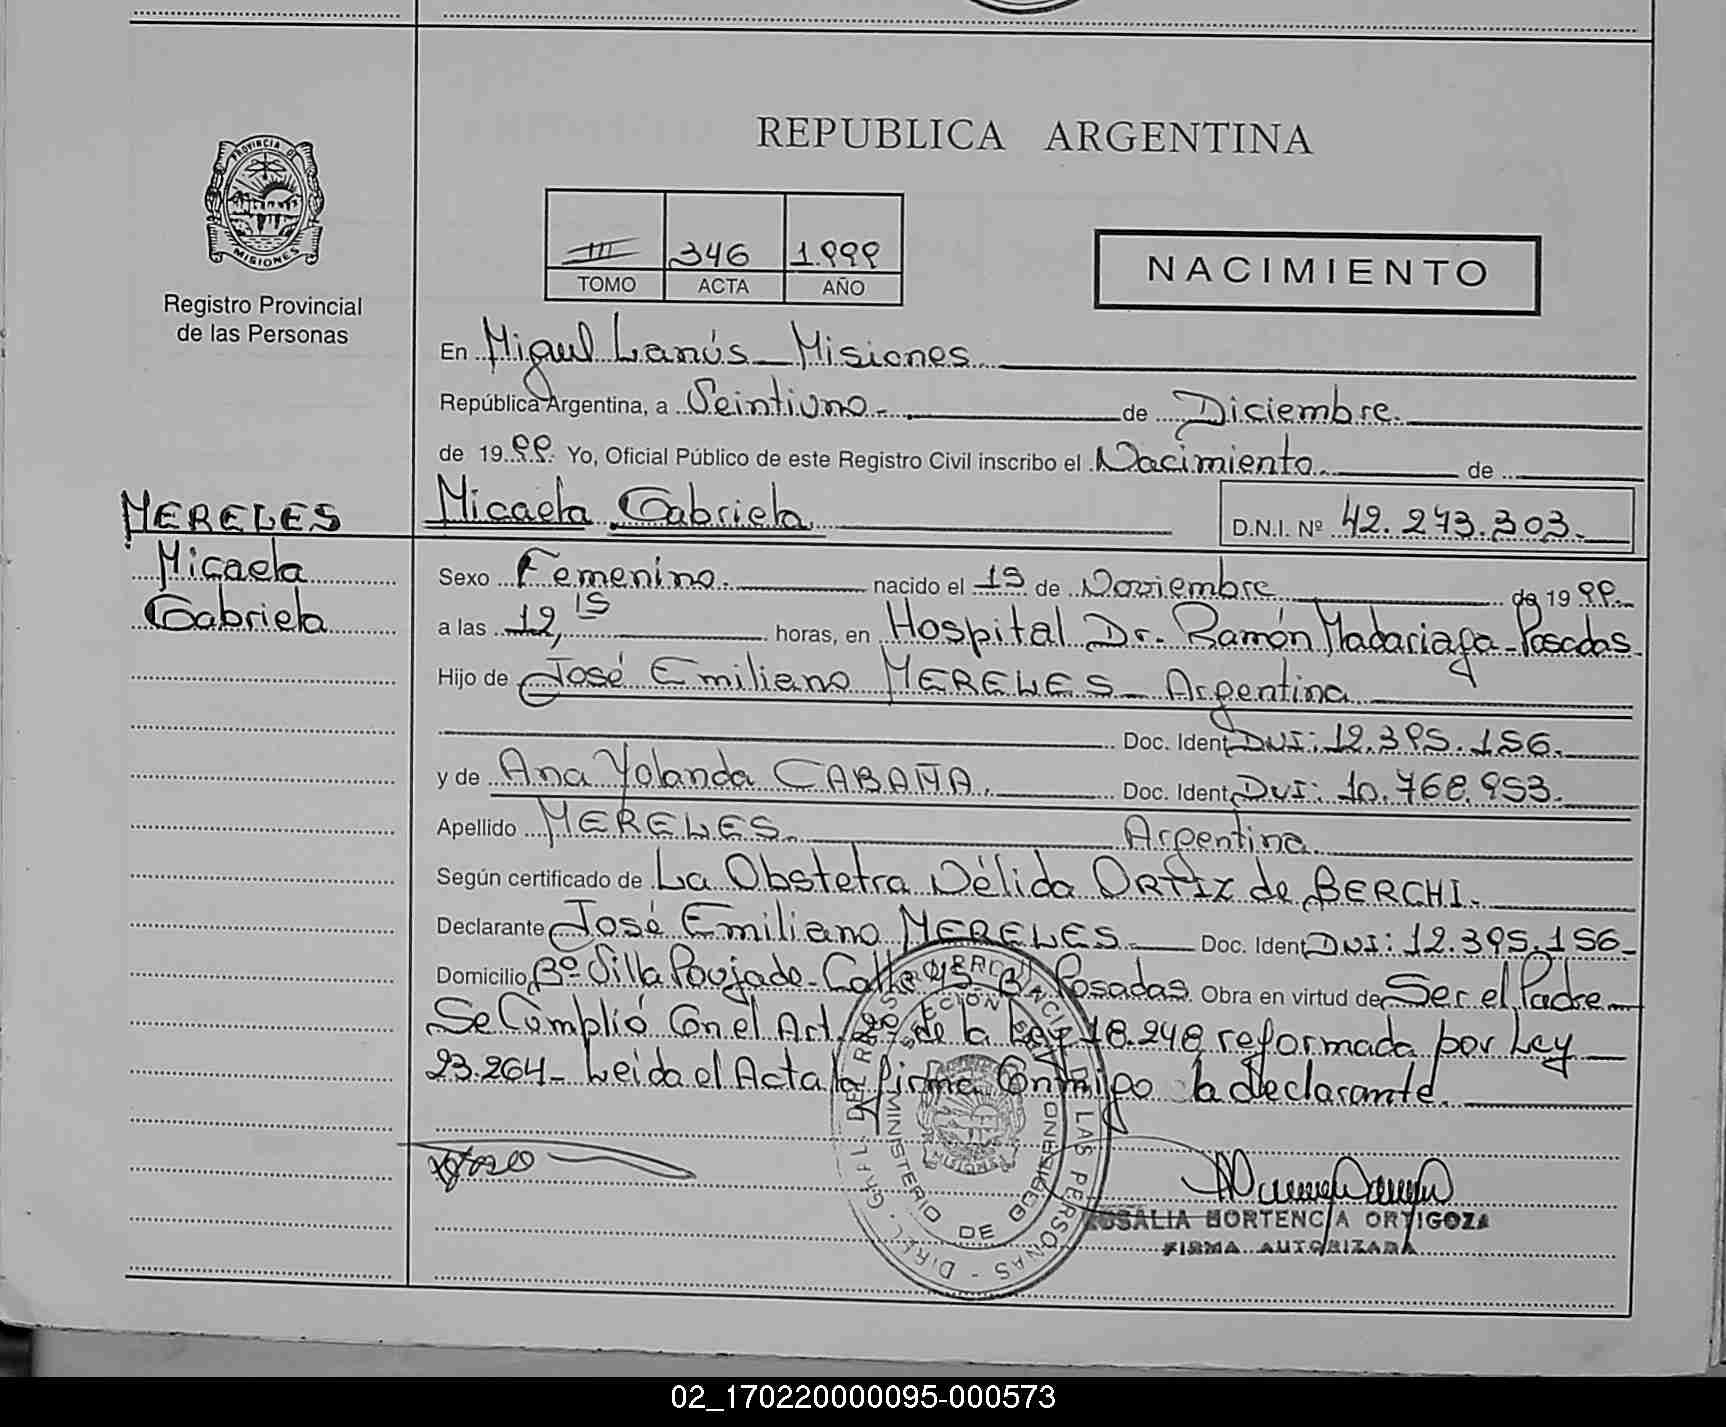 REPUBLICA ARGENTINA
PROVINCIA DE
MISIONES
Registro Provincial
de las Personas
III 346 1.999
TOMO ACTA AÑO
NACIMIENTO
En Miguel Lanús - Misiones
República Argentina, a Veintiuno.- de Diciembre.
de 1999. Yo, Oficial Público de este Registro Civil inscribo el Nacimiento de
MERELES Micaela Gabriela D.N.I. Nº 42.273.303.-
Micaela
Gabriela
Sexo Femenino. nacido el 15 de Noviembre de 1999.
a las 12,15 horas, en Hospital Dr. Ramón Madariaga - Posadas.
Hijo de José Emiliano MERELES - Argentina
Doc. Ident. DNI: 12.395.156.
y de Ana Yolanda CABAÑA. Doc. Ident. DNI: 10.768.953.
Apellido MERELES. Argentina
Según certificado de La Obstetra Délida ORTIZ de BERCHI.
Declarante José Emiliano MERELES Doc. Ident. DNI: 12.395.156-
Domicilio Bº Villa Poujade - Calle Posadas. Obra en virtud de Ser el Padre
Se Cumplió Con el Art. 20 de la Ley 18.248 reformada por Ley
23.264 - Leida el Acta la firma Conmigo la declarante.
ROSALIA HORTENCIA ORTIGOZA
FIRMA AUTORIZADA
MINISTERIO DE GOBIERNO
02_170220000095-000573